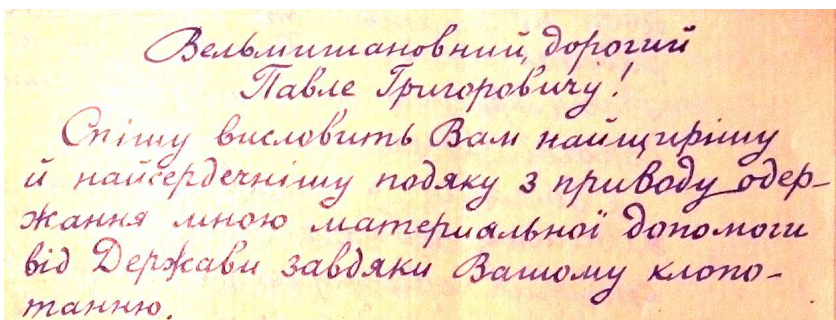 Вельмишановний, дорогий
Павле Григоровичу!
Спішу висловить Вам найщирішу
й найсердечнішу подяку з приводу одер-
жання мною материальної допомоги
від Держави завдяки Вашому клопо-
танню.